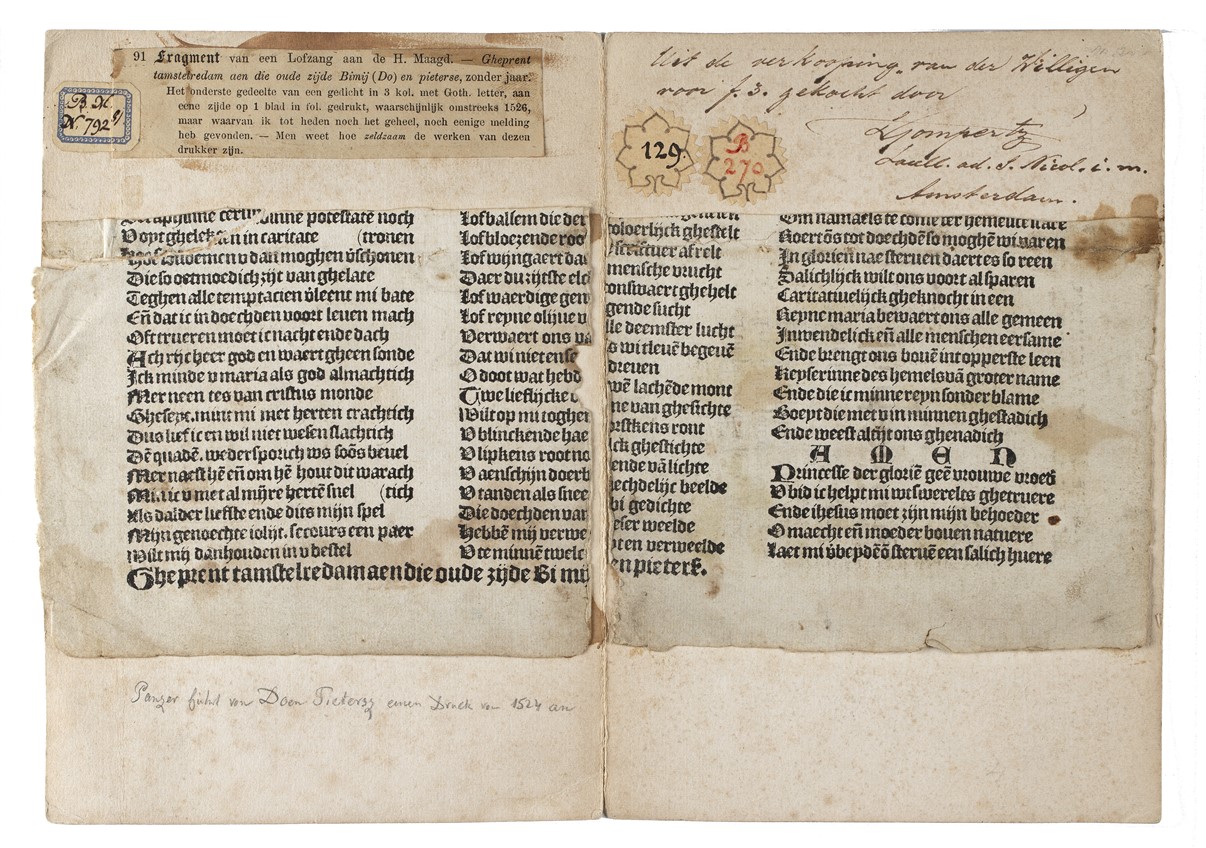 91 Fragment van een Lofzang aan de H. Maagd. — Gheprent
tamstelredam aen die oude zijde Bimij (Do) en pieterse, zonder jaar.
Het onderste gedeelte van een gedicht in 3 kol. met Goth. letter, aan
eene zijde op 1 blad in fol. gedrukt, waarschijnlijk omstreeks 1526,
maar waarvan ik tot heden noch het geheel, noch eenige melding
heb gevonden. — Men weet hoe zeldzaam de werken van dezen
drukker zijn.
B. M.
N. 792
Uit de verkooping van der Willigen
voor f. 3. gekocht door
Amsterdam.
129.
B
270
potestatē noch
in caritate (tronen
v dan moghen v̄schonen
Die so oetmoedich zijt van ghelate
Teghen alle temptacien v̄leent mi bate
Eñ dat ic in doechden voort leuen mach
Oft trueren moet ic nacht ende dach
Ach rijc heer god en waert gheen sonde
Ick minde v maria als god almachtich
Mer neen tes van cristus monde
mi met herten crachtich
Dus lief ic en wil niet wesen slachtich
Dē quadē wedersporich ws soōs beuel
Mer naest hē eñ om hē hout dit warach
Min ic v met al mijre hertē snel (tich
Als dalder liefste ende dits mijn spel
Mijn genoechte iolijt. secours een paer
Wilt mij danhouden in v bestel
Gheprent tamstelredam aen die oude zijde Bi mij
Lof balsem die der
Lof bloezende roo
Lof wijngaert da
Daer du zijtste elc
Lof waerdige gen
Lof reyne olijue v
Verwaert ons va
Dat wi niet en se
O doot wat hebd
Twe lieflijcke
Wilt op mi toghen
V blinckende hae
V lipkens root no
V aenschijn doerb
V tanden als snee
Die doechden van
Hebbē mij verwe
V te minnē twelc
oloerlijck ghestelt
afrelt
mensche vrucht
onswaert ghehelt
gende sucht
lle deemster lucht
s wi tleuē begeuē
dreuen
wē lachēde mont
ne van ghesichte
ront
ck ghestichte
ende vā lichte
echdelijc beelde
bi gedichte
eser weelde
ten verweelde
en pieters.
Om namaels te come ter hemelt hare
Koert ōs tot doechdē so moghē wi varen
In glorien nae steruen daert es so reen
Salichlijck wilt ons voort al sparen
Caritatiuelijck gheknocht in een
Reyne maria bewaert ons alle gemeen
Inwendelick eñ alle menschen eersame
Ende brengt ons bouē int opperste leen
Keyserinne des hemels vā groter name
Ende die ic minne reyn sonder blame
Goept die met v in minnen ghestadich
Ende weest altijt ons ghenadich
A M E N
Princesse der gloriē geē vrouwe vroed
V bid ic helpt mi wt swerelts ghetruere
Ende ihesus moet zijn mijn behoeder
O macht eñ moeder bouen natuere
Laet mi v̄beydēō steruē een salich huere
Panzer führt von Doen Pietersz einen Druck von 1524 an